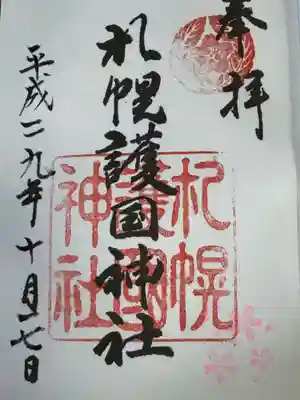 奉拝
札幌護国神社
平成二九年十月七日
札幌
護國
神社